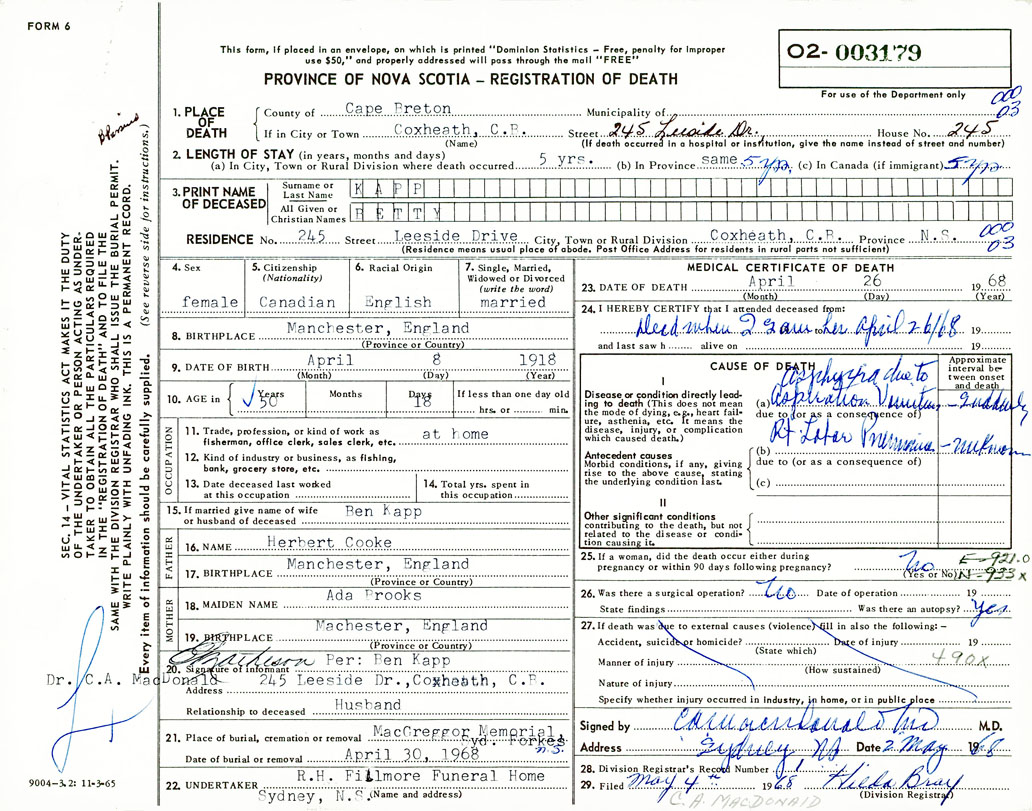 FORM 6
This form, if placed in an envelope, on which is printed "Dominion Statistics – Free, penalty for Improper
use $50," and properly addressed will pass through the mail "FREE"
PROVINCE OF NOVA SCOTIA – REGISTRATION OF DEATH
02- 003179
For use of the Department only
000
03
1. PLACE OF DEATH
County of Cape Breton Municipality of
If in City or Town Coxheath, C.B. Street 245 Leeside Dr., House No. 245
(Name) (If death occurred in a hospital or institution, give the name instead of street and number)
2. LENGTH OF STAY (in years, months and days)
(a) In City, Town or Rural Division where death occurred 5 yrs. (b) In Province same 5 yrs (c) In Canada (if immigrant) 5 yrs
3. PRINT NAME OF DECEASED
Surname or Last Name KAPP
All Given or Christian Names BETTY
RESIDENCE No. 245 Street Leeside Drive City, Town or Rural Division Coxheath, C.B. Province N.S.
(Residence means usual place of abode. Post Office Address for residents in rural parts not sufficient)
000
03
4. Sex
female
5. Citizenship
(Nationality)
Canadian
6. Racial Origin
English
7. Single, Married,
Widowed or Divorced
(write the word)
married
8. BIRTHPLACE Manchester, England
(Province or Country)
9. DATE OF BIRTH April 8 1918
(Month) (Day) (Year)
10. AGE in Years 50 Months Days 18 If less than one day old
hrs. or min.
OCCUPATION
11. Trade, profession, or kind of work as
fisherman, office clerk, sales clerk, etc. at home
12. Kind of industry or business, as fishing,
bank, grocery store, etc.
13. Date deceased last worked
at this occupation
14. Total yrs. spent in
this occupation
15. If married give name of wife
or husband of deceased Ben Kapp
FATHER
16. NAME Herbert Cooke
17. BIRTHPLACE Manchester, England
(Province or Country)
MOTHER
18. MAIDEN NAME Ada Brooks
19. BIRTHPLACE Machester, England
(Province or Country)
Per: Ben Kapp
20. Signature of informant
Dr. C.A. MacDonald
Address 245 Leeside Dr., Coxheath, C.B.
Relationship to deceased Husband
21. Place of burial, cremation or removal MacGreggor Memorial,
yd. Forkes
n.S.
Date of burial or removal April 30, 1968
22. UNDERTAKER R.H. Fillmore Funeral Home
Sydney, N.S. (Name and address)
MEDICAL CERTIFICATE OF DEATH
23. DATE OF DEATH April 26 1968
(Month) (Day) (Year)
24. I HEREBY CERTIFY that I attended deceased from:
Dead when I saw her April 26/68 19
to
and last saw h alive on 19
CAUSE OF DEATH
Approximate interval between onset and death
I
Disease or condition directly leading
to death (This does not mean
the mode of dying, e.g., heart failure,
asthenia, etc. It means the
disease, injury, or complication
which caused death.)
Asphyxia due to
(a) aspiration Vomitus – Suddenly
due to (or as a consequence of)
Rt. Lobar Pneumonia – unknown
(b)
due to (or as a consequence of)
(c)
Antecedent causes
Morbid conditions, if any, giving
rise to the above cause, stating
the underlying condition last.
II
Other significant conditions
contributing to the death, but not
related to the disease or condition
causing it.
25. If a woman, did the death occur either during
pregnancy or within 90 days following pregnancy? No
(Yes or No)
E-921.0
N-933x
26. Was there a surgical operation? No Date of operation 19
State findings Was there an autopsy? Yes
27. If death was due to external causes (violence) fill in also the following:–
Accident, suicide or homicide? Date of injury 19
(State which)
490X
Manner of injury
(How sustained)
Nature of injury
Specify whether injury occurred in Industry, in home, or in public place
Signed by C A MacDonald M.D.
Address Sydney NS Date 2 May 1968
28. Division Registrar's Record Number 1
29. Filed May 4th 1968 Hilda Bray
(Division Registrar)
C.A. MACDONALD
SEC. 14 – VITAL STATISTICS ACT MAKES IT THE DUTY
OF THE UNDERTAKER OR PERSON ACTING AS UNDERTAKER
TO OBTAIN ALL THE PARTICULARS REQUIRED
IN THE "REGISTRATION OF DEATH" AND TO FILE THE
SAME WITH THE DIVISION REGISTRAR WHO SHALL ISSUE THE BURIAL PERMIT.
WRITE PLAINLY WITH UNFADING INK. THIS IS A PERMANENT RECORD.
Every item of information should be carefully supplied. (See reverse side for instructions.)
9004-3.2: 11-3-65